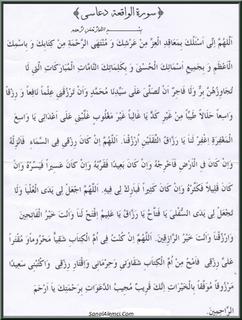 ﴿سورة الواقعة دعاسى﴾
بسم الله الرحمن الرحيم
اللّهُمَّ إنّى أسئلك بمعاقد العزّ من عرشك و منتهى الرّحمة من كتابك و باسمك
الأعظم و بجميع أسمائك الحسنى و بكلماتك التّامّات المباركات الّتى لا
تجاوزهنّ برّ ولا فاجر أن تصلّى على سيّدنا محمّد وأن ترزقنى علماً نافعاً و رزقاً
واسعاً حلالاً طيّباً من غير كدّ يا غالباً غير مغلوب غلّبنى على أعدائى يا واسع
المغفرة اغفر لنا يا رزّاق الثّقلين ارزقنا. اللّهمّ إن كان رزقى فى السّماء فأنزله
وإن كان فى الأرض فأخرجه وإن كان بعيداً فقرّبه وإن كان عسيراً فيسّره وإن
كان قليلاً فكثّره وإن كان كثيراً فبارك لى فيه. اللّهمّ اجعل لى يدى العليا ولا
تجعل لى يدى السّفلى يا فتّاح يا رزّاق يا عليم افتح لنا وأنت خير الفاتحين
وارزقنا وأنت خير الرّازقين. اللّهمّ إن كنت فى أمّ الكتاب شقياً محروماً و مقتراً
على رزقى فامح من أمّ الكتاب شقاوتى وحرمانى وإقتار رزقى واكتبنى سعيداً
مرزوقاً موفّقاً بالخيرات إنّك قريب مجيب الدّعوات برحمتك يا أرحم
الرّاحمين
SanalAlemci.Com